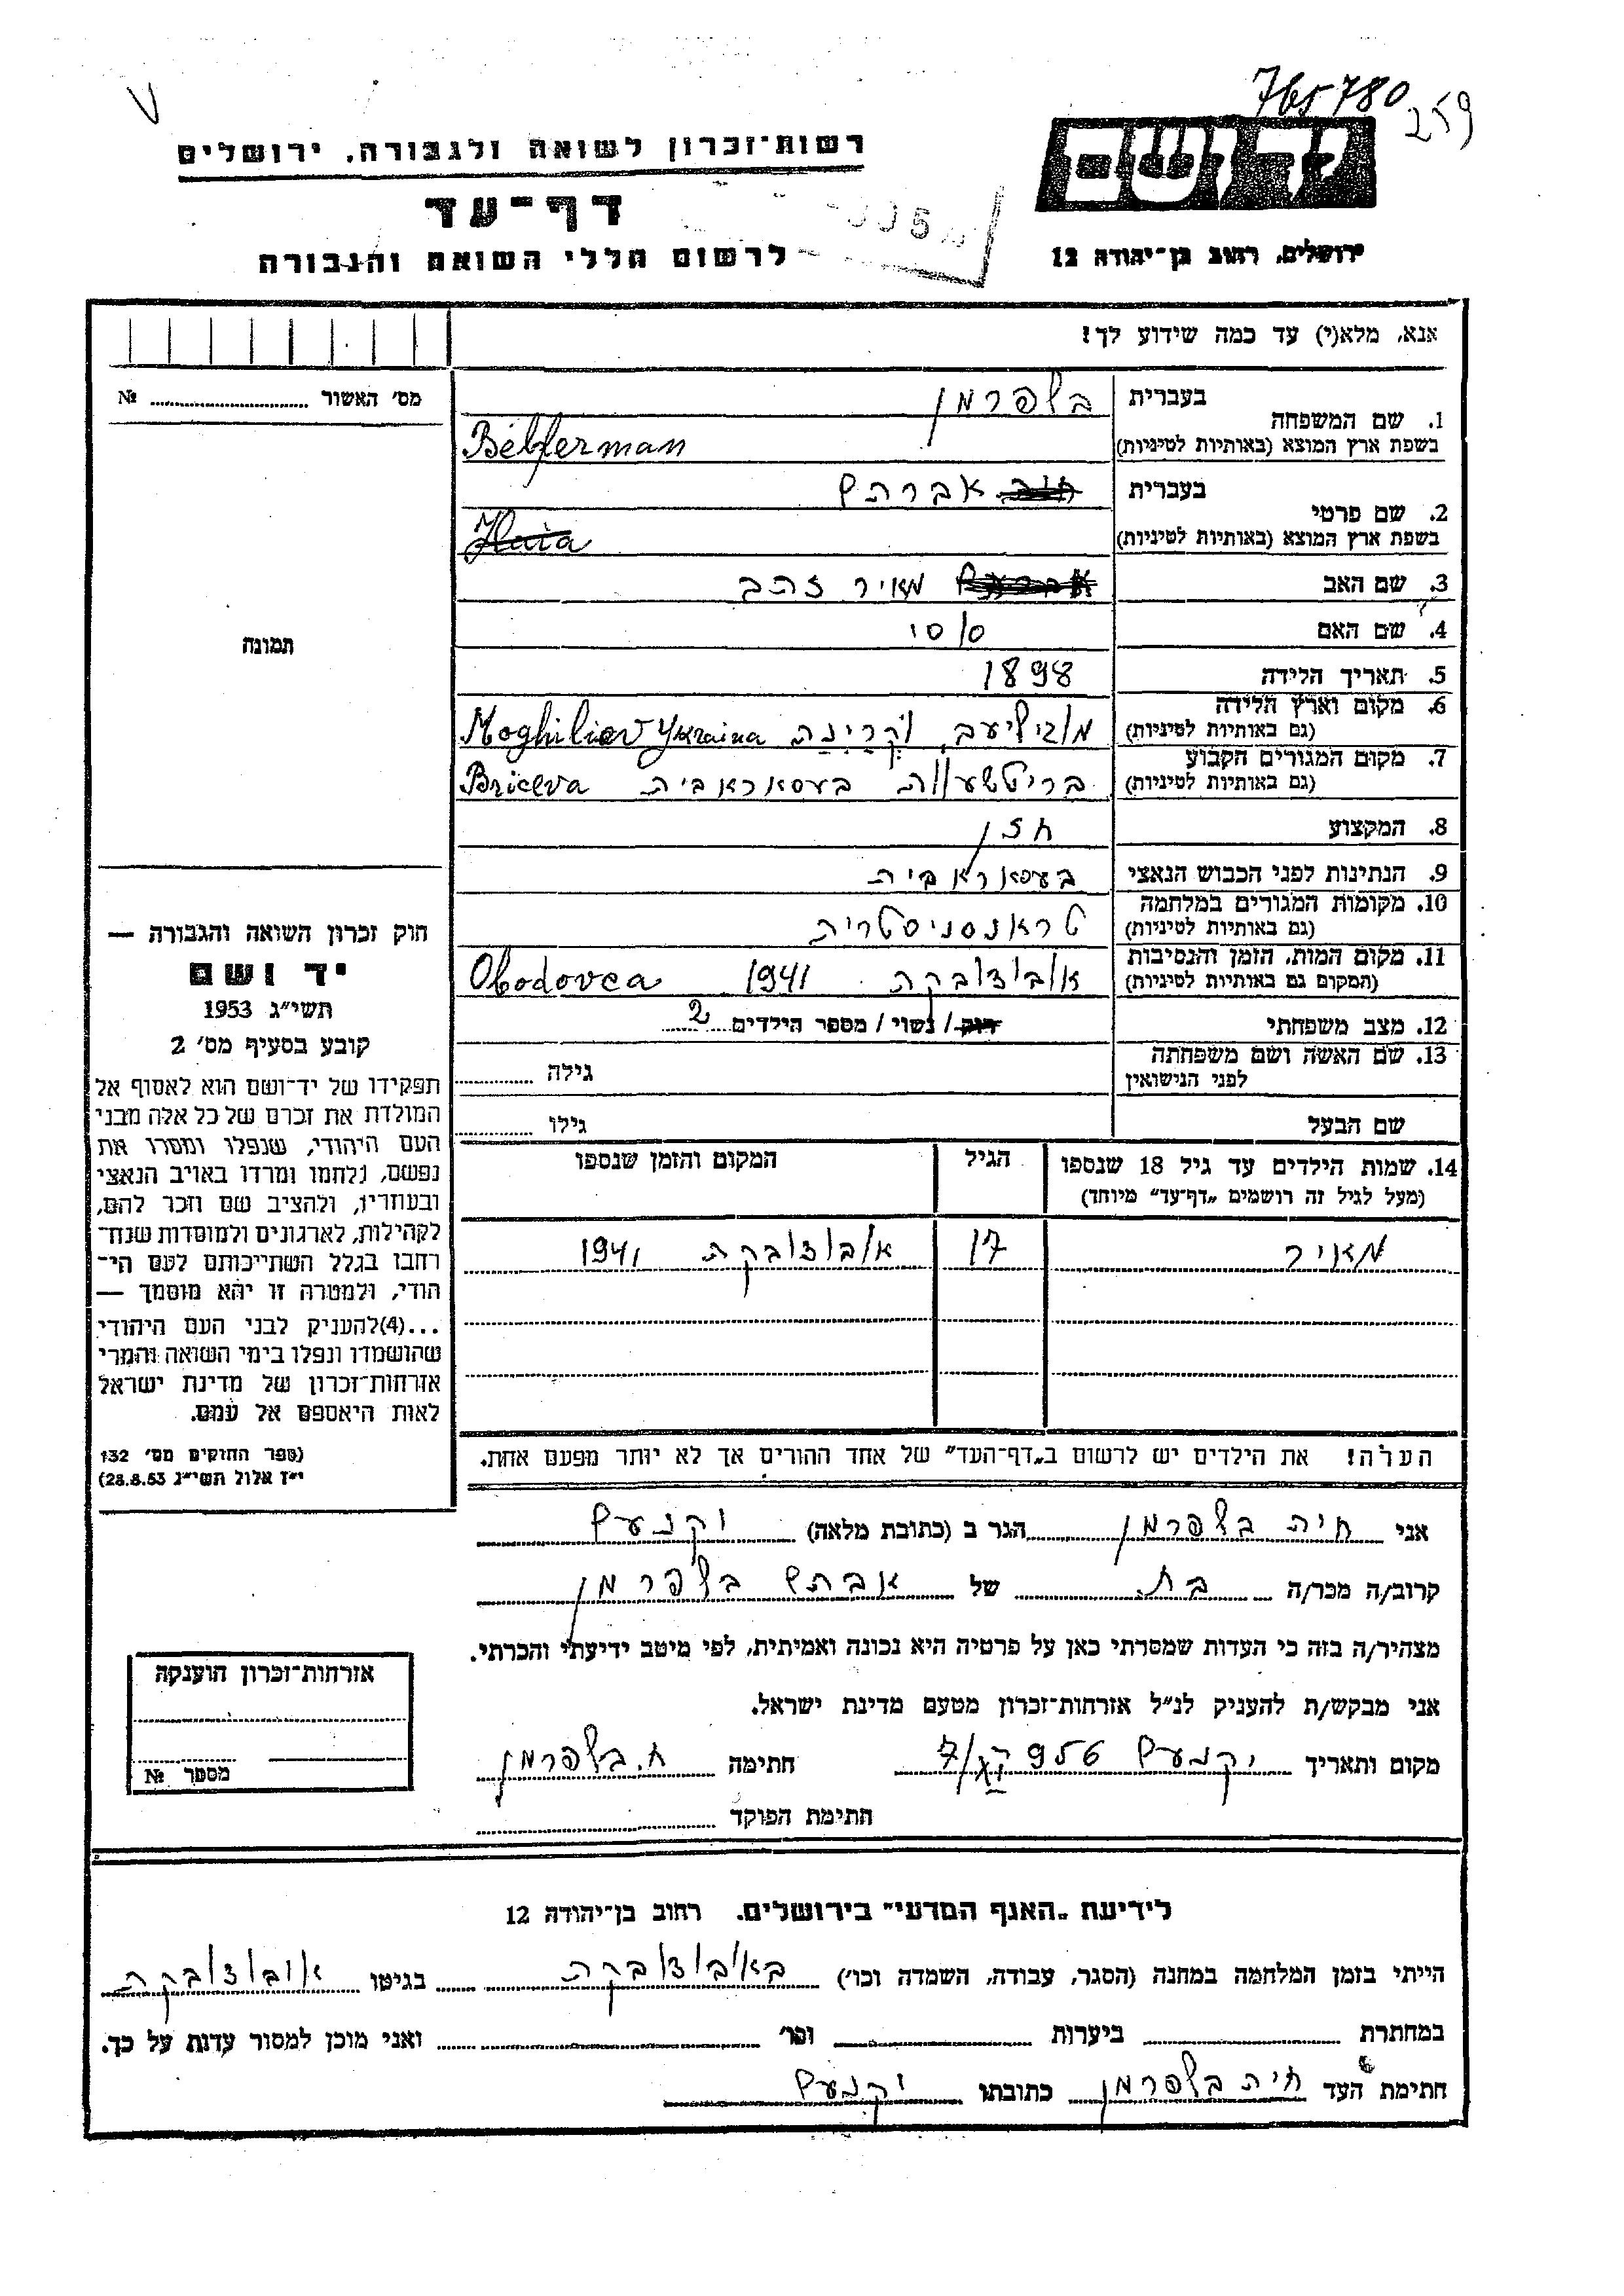 765780
259
רשות־זכרון לשואה ולגבורה, ירושלים
דף־עד
לרשום חללי השואה והגבורה
יד ושם
ירושלים, רחוב בן־יהודה 12
אנא, מלא(י) עד כמה שידוע לך!
מס' האשור № 
1. שם המשפחה
בעברית בלפרמן
בשפת ארץ המוצא (באותיות לטיניות) Belferman
2. שם פרטי
בעברית אברהם
בשפת ארץ המוצא (באותיות לטיניות) Haia
3. שם האב מאיר זהב
4. שם האם
5. תאריך הלידה 1898
6. מקום וארץ הלידה
(גם באותיות לטיניות) Moghiliov Ykraina
7. מקום המגורים הקבוע
(גם באותיות לטיניות) בעסאראביה Briceva
8. המקצוע חזן
9. הנתינות לפני הכבוש הנאצי בעסאראביה
10. מקומות המגורים במלחמה
(גם באותיות לטיניות) טראנסניסטריה
11. מקום המות, הזמן והנסיבות
(המקום גם באותיות לטיניות) אובודובקה 1941 Obodovca
12. מצב משפחתי רוק / נשוי / מספר הילדים 2
13. שם האשה ושם משפחתה
לפני הנישואין
גילה
שם הבעל גילו
14. שמות הילדים עד גיל 18 שנספו
(מעל לגיל זה רושמים „דף־עד" מיוחד)
הגיל
המקום והזמן שנספו
מאיר 17 אובודובקה 1941
הערה! את הילדים יש לרשום ב„דף־העד" של אחד ההורים אך לא יותר מפעם אחת.
תמונה
חוק זכרון השואה והגבורה —
יד ושם
תשי״ג 1953
קובע בסעיף מס' 2
תפקידו של יד־ושם הוא לאסוף אל
המולדת את זכרם של כל אלה מבני
העם היהודי, שנפלו ומסרו את
נפשם, נלחמו ומרדו באויב הנאצי
ובעוזריו, ולהציב שם וזכר להם,
לקהילות, לארגונים ולמוסדות שנח־
רחבו בגלל השתייכותם לעם הי־
הודי, ולמטרה זו יהא מוסמך —
...(4)להעניק לבני העם היהודי
שהושמדו ונפלו בימי השואה והמרי
אזרחות־זכרון של מדינת ישראל
לאות היאספם אל עמם.
(ספר החוקים מס' 132
י״ז אלול תשי״ג 28.8.53)
אני חיה בלפרמן הגר ב (כתובת מלאה) יקנעם
קרוב/ה מכר/ה בת של אברהם בלפרמן
מצהיר/ה בזה כי העדות שמסרתי כאן על פרטיה היא נכונה ואמיתית, לפי מיטב ידיעתי והכרתי.
אני מבקש/ת להעניק לנ״ל אזרחות־זכרון מטעם מדינת ישראל.
מקום ותאריך יקנעם חתימה ח. בלפרמן
חתימת הפוקד
אזרחות־זכרון הוענקה
מספר №
לידיעת „האגף המדעי" בירושלים, רחוב בן־יהודה 12
הייתי בזמן המלחמה במחנה (הסגר, עבודה, השמדה וכו') באובודובקה בגיטו אובודובקה
במחתרת ביערות וכו' ואני מוכן למסור עדות על כך.
חתימת העד חיה בלפרמן כתובתו יקנעם